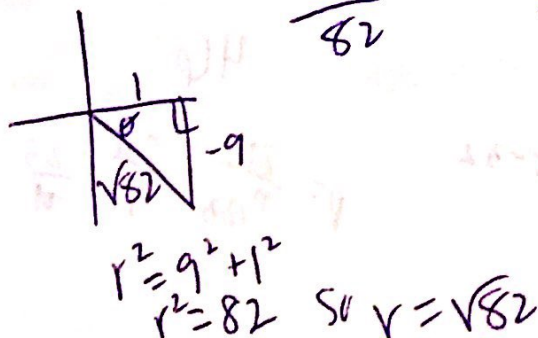 82
1
θ
-9
√82
r² = 9² + 1²
r² = 82 so r = √82